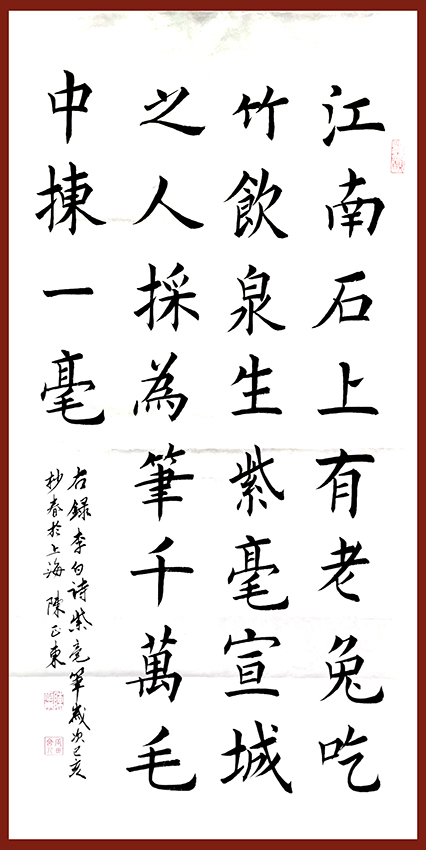 江南石上有老兔吃
竹飲泉生紫毫宣城
之人採為筆千萬毛
中揀一毫
右錄李白诗紫毫筆歲次己亥
抄春於上海 陳正東